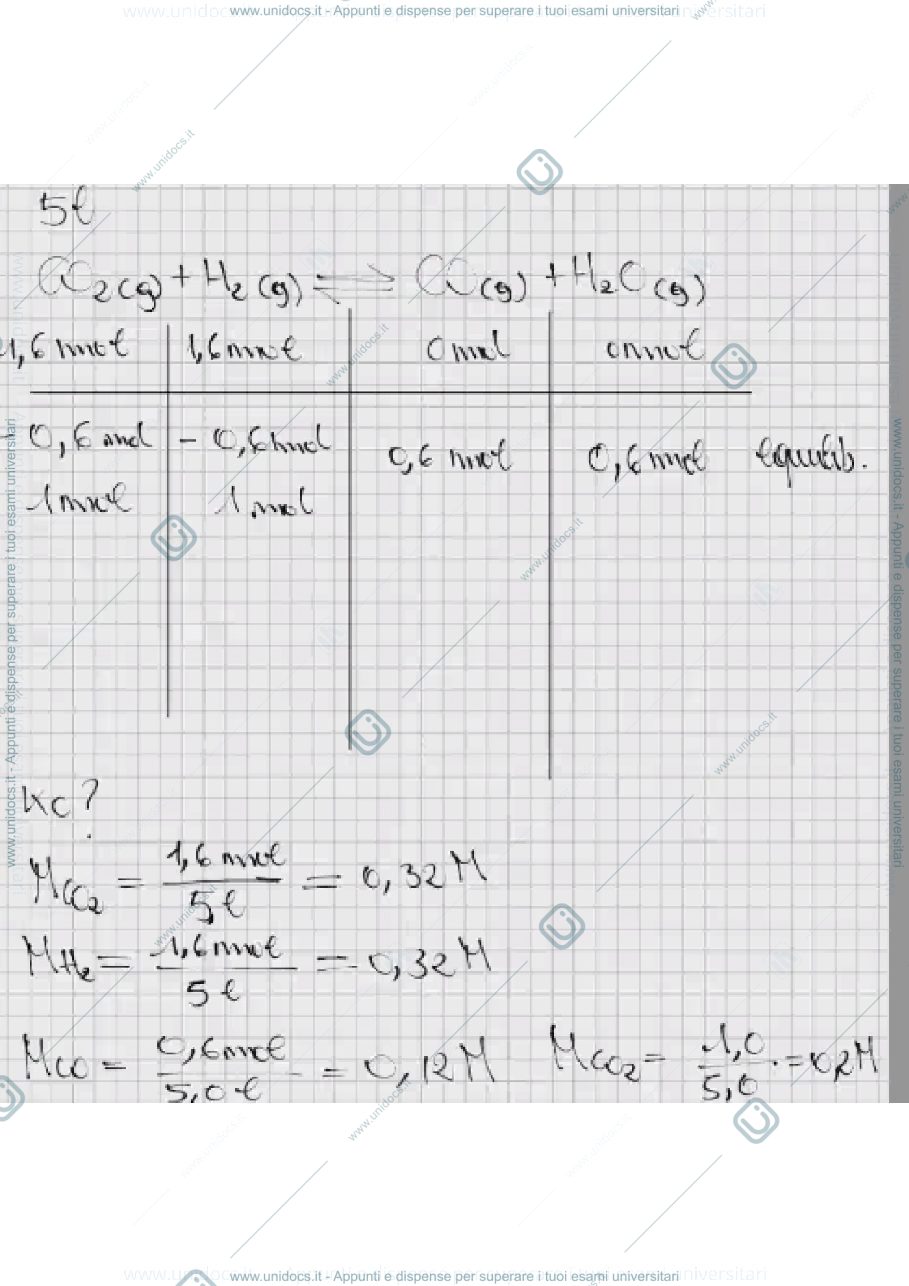 www.unidocs.it - Appunti e dispense per superare i tuoi esami universitari
5ℓ
CO₂(g) + H₂(g) ⇌ CO(g) + H₂O(g)
1,6 mol | 1,6 mol | 0 mol | 0 mol
- 0,6 mol | - 0,6 mol | 0,6 mol | 0,6 mol equilib.
1 mol | 1 mol
Kc?
M CO₂ = 1,6 mol / 5ℓ = 0,32 M
M H₂ = 1,6 mol / 5ℓ = 0,32 M
M CO = 0,6 mol / 5,0 ℓ = 0,12 M M CO₂ = 1,0 / 5,0 = 0,2 M
www.unidocs.it - Appunti e dispense per superare i tuoi esami universitari
www.unidocs.it - Appunti e dispense per superare i tuoi esami universitari
www.unidocs.it - Appunti e dispense per superare i tuoi esami universitari
www.unidocs.it
www.unidocs.it
www.unidocs.it
www.unidocs.it
www.unidocs.it
www.unidocs.it